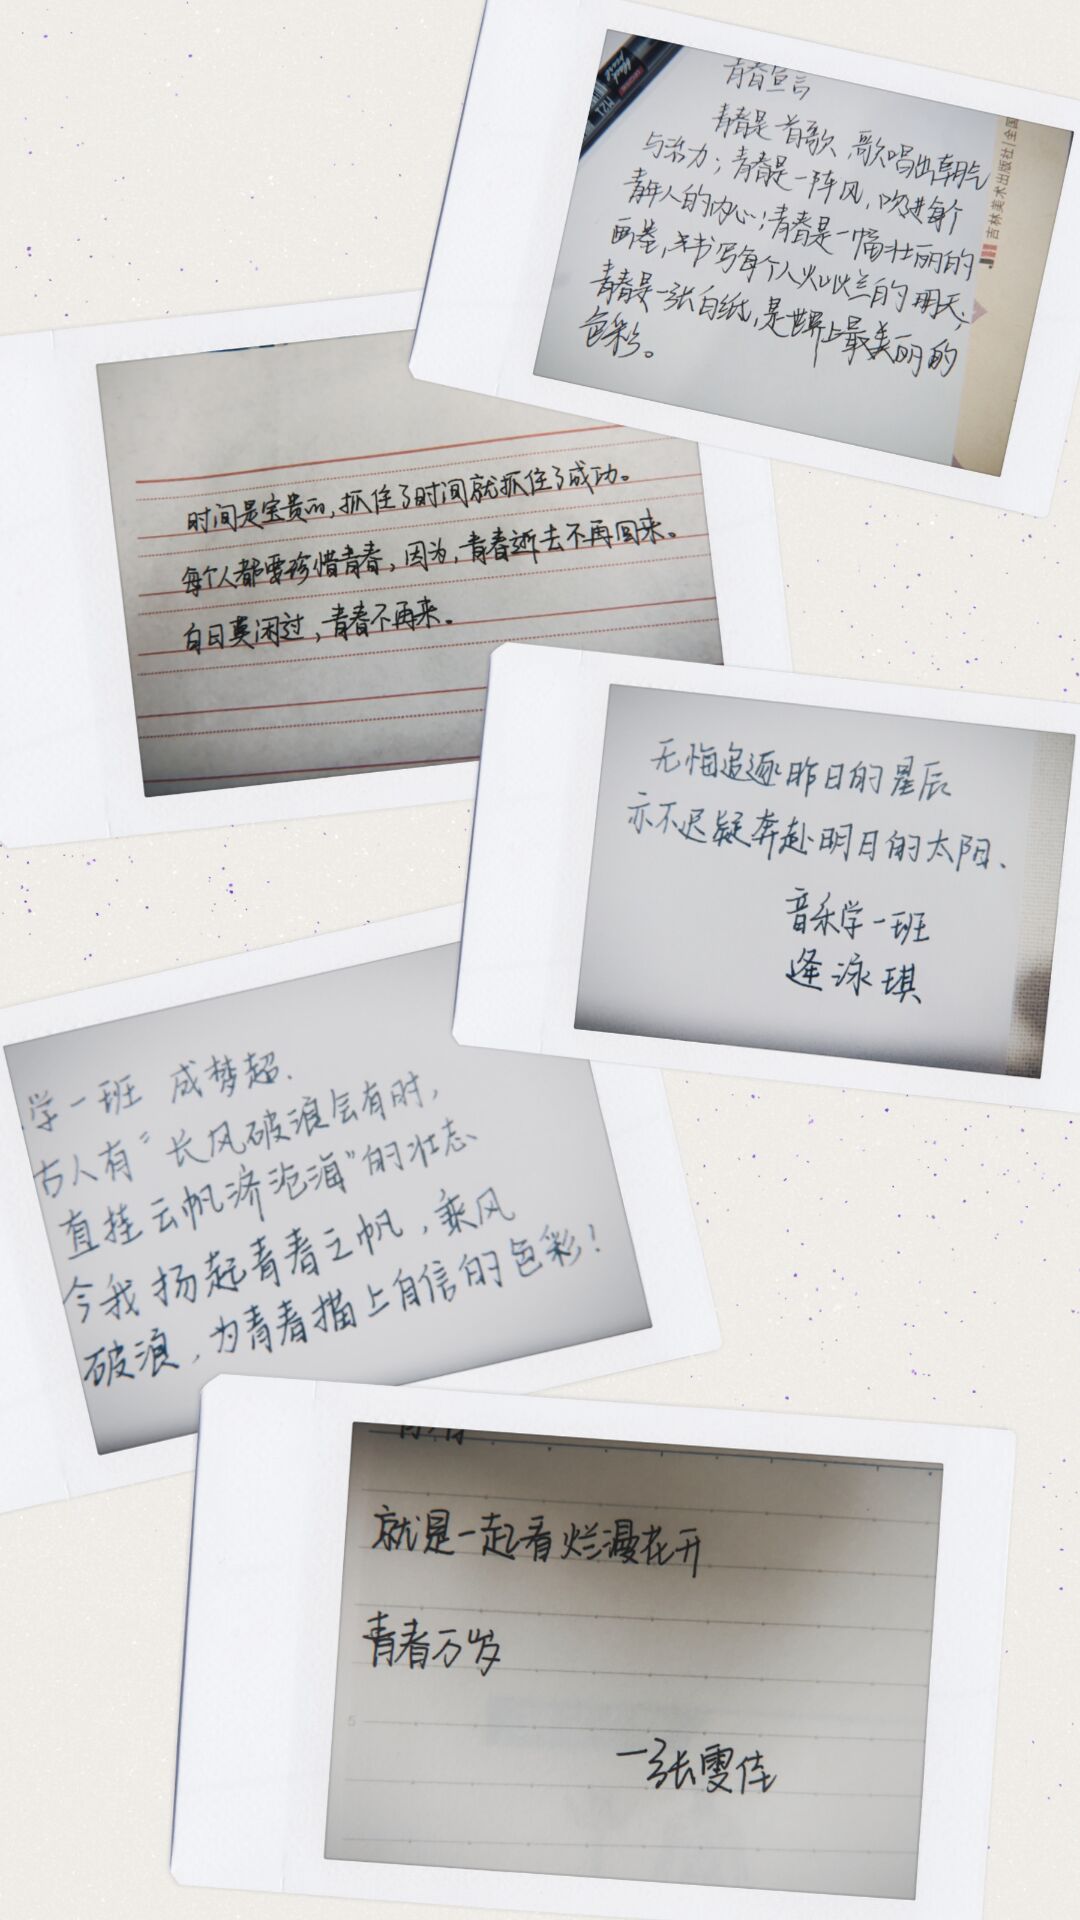 青春宣言
青春是首歌,歌唱出朝气
与活力;青春是一阵风,吹进每个
青年人的内心;青春是一幅壮丽的
画卷,书写每个人火灿烂的明天;
青春是一张白纸,是世界上最美丽的
色彩。
吉林美术出版社|全国
时间是宝贵的,抓住了时间就抓住了成功。
每个人都要珍惜青春,因为,青春逝去不再回来。
白日莫闲过,青春不再来。
无悔追逐昨日的星辰
亦不迟疑奔赴明日的太阳.
音乐学一班
逄泳琪
学一班 成梦超.
古人有“长风破浪会有时,
直挂云帆济沧海”的壮志
今我扬起青春之帆,乘风
破浪,为青春描上自信的色彩!
就是一起看烂漫花开
青春万岁
5
一张雯佳